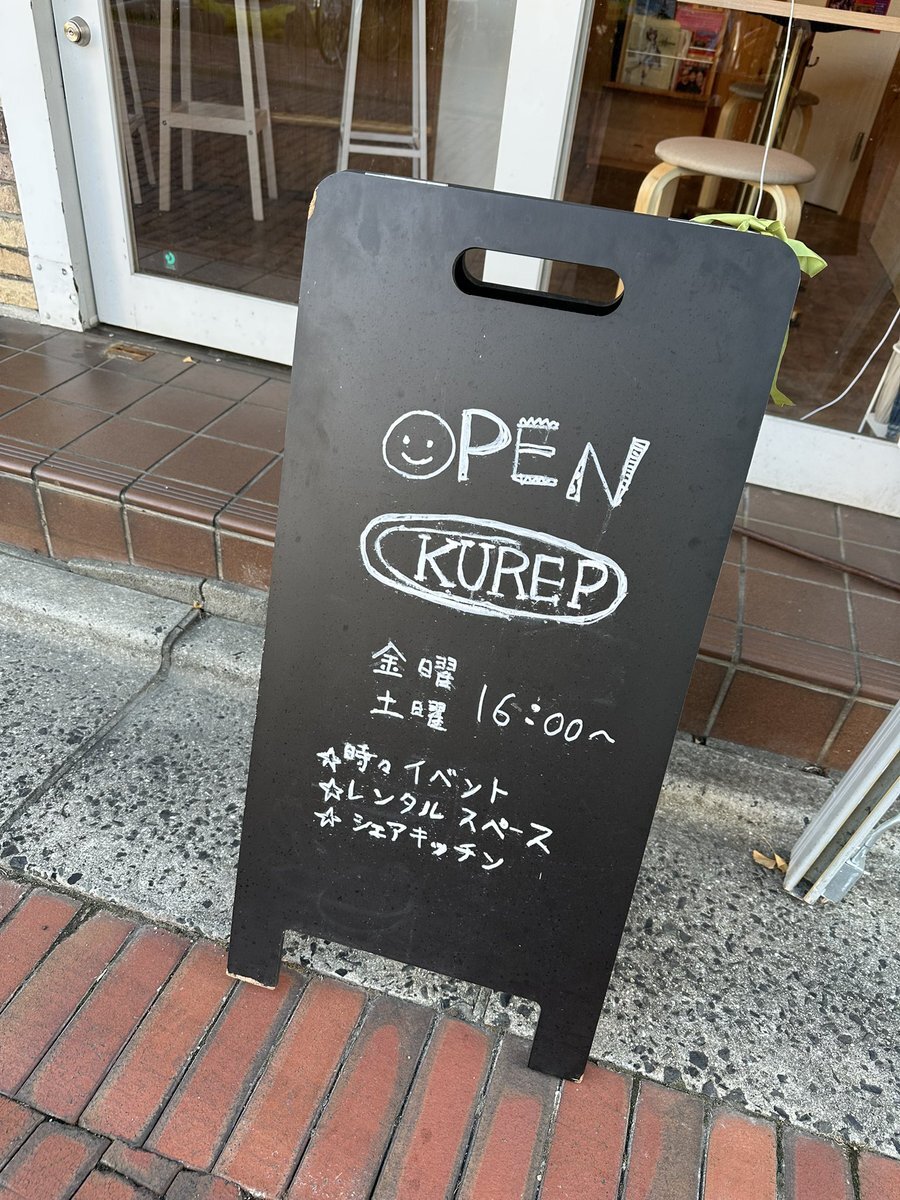 OPEN
KUREP
金曜
土曜 16:00~
☆時々イベント
☆レンタルスペース
☆シェアキッチン